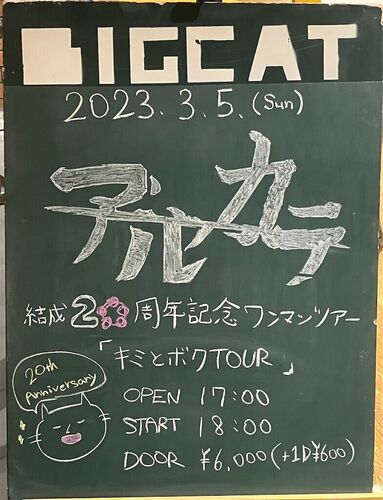 BIGCAT
2023.3.5.(Sun)
アルカラ
結成20周年記念ワンマンツアー
「キミとボクTOUR」
20th
Anniversary
OPEN 17:00
START 18:00
DOOR ¥6,000(+1D¥600)